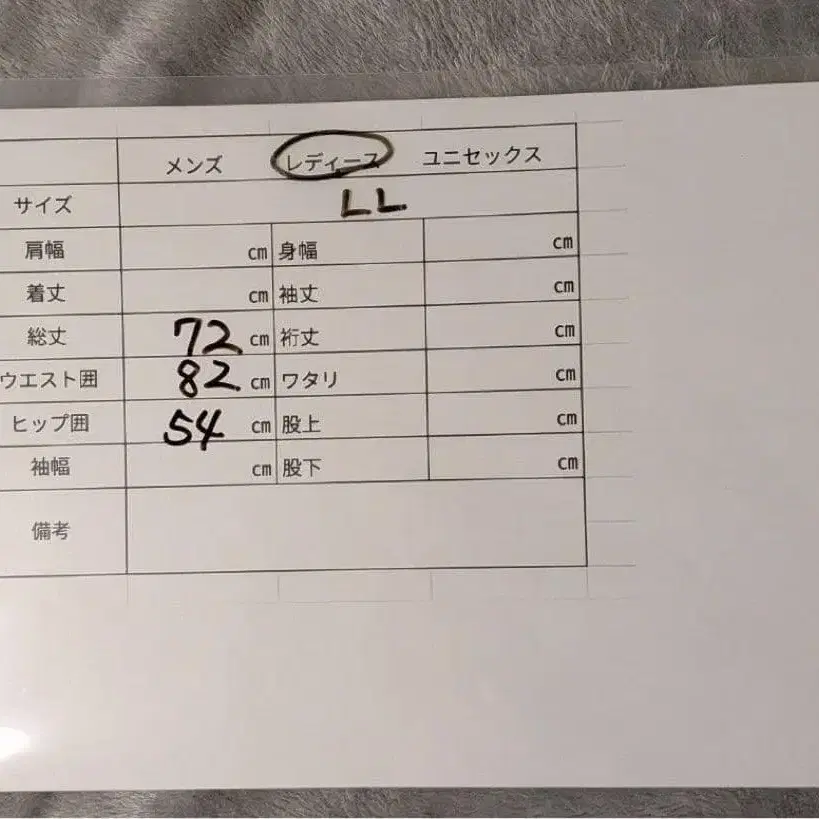 メンズ レディース ユニセックス
サイズ LL
肩幅 cm 身幅 cm
着丈 cm 袖丈 cm
総丈 72 cm 裄丈 cm
ウエスト囲 82 cm ワタリ cm
ヒップ囲 54 cm 股上 cm
袖幅 cm 股下 cm
備考